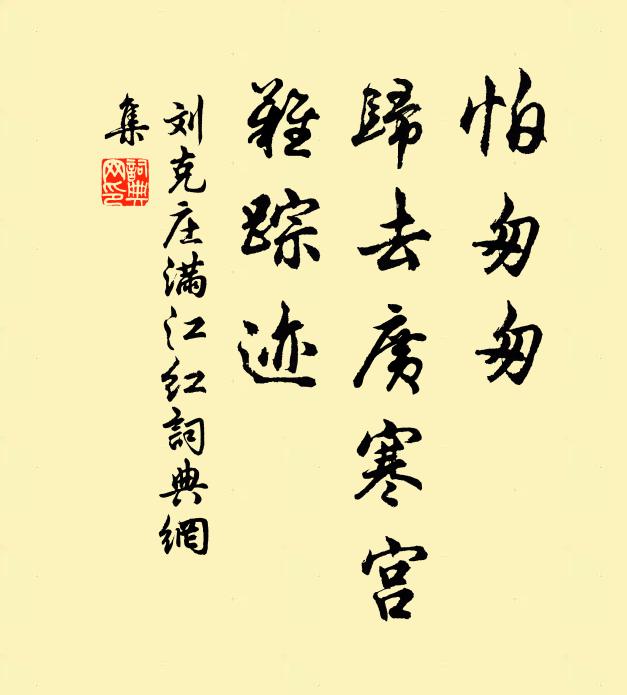 怕匆匆
歸去廣寒宫
難踪迹
刘克庄滿江红詞典網
集
詞典网印